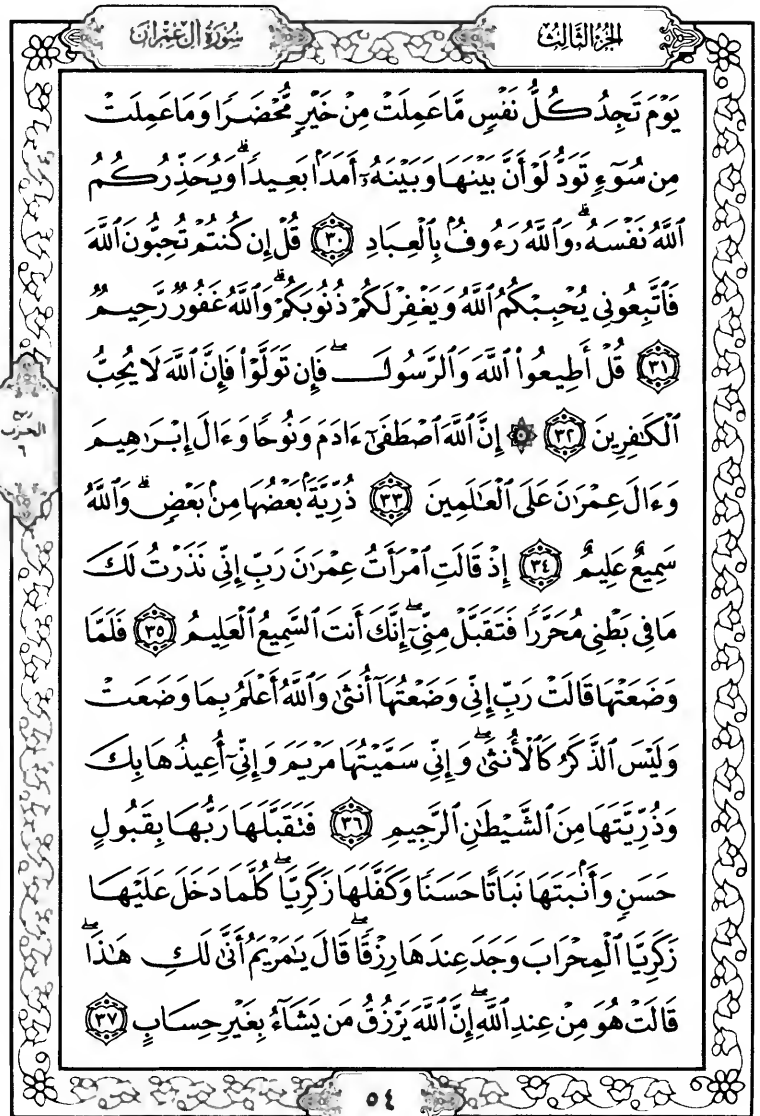 الجزء الثالث
سورة آل عمران
يَوْمَ تَجِدُ كُلُّ نَفْسٍ مَّا عَمِلَتْ مِنْ خَيْرٍ مُّحْضَرًا وَمَا عَمِلَتْ
مِن سُوٓءٍ تَوَدُّ لَوْ أَنَّ بَيْنَهَا وَبَيْنَهُۥٓ أَمَدَۢا بَعِيدًا ۗ وَيُحَذِّرُكُمُ
ٱللَّهُ نَفْسَهُۥ ۗ وَٱللَّهُ رَءُوفٌۢ بِٱلْعِبَادِ ٣٠ قُلْ إِن كُنتُمْ تُحِبُّونَ ٱللَّهَ
فَٱتَّبِعُونِى يُحْبِبْكُمُ ٱللَّهُ وَيَغْفِرْ لَكُمْ ذُنُوبَكُمْ ۗ وَٱللَّهُ غَفُورٌ رَّحِيمٌ
٣١ قُلْ أَطِيعُوا۟ ٱللَّهَ وَٱلرَّسُولَ ۖ فَإِن تَوَلَّوْا۟ فَإِنَّ ٱللَّهَ لَا يُحِبُّ
ٱلْكَٰفِرِينَ ٣٢ ۞ إِنَّ ٱللَّهَ ٱصْطَفَىٰٓ ءَادَمَ وَنُوحًا وَءَالَ إِبْرَٰهِيمَ
وَءَالَ عِمْرَٰنَ عَلَى ٱلْعَٰلَمِينَ ٣٣ ذُرِّيَّةًۢ بَعْضُهَا مِنۢ بَعْضٍ ۗ وَٱللَّهُ
سَمِيعٌ عَلِيمٌ ٣٤ إِذْ قَالَتِ ٱمْرَأَتُ عِمْرَٰنَ رَبِّ إِنِّى نَذَرْتُ لَكَ
مَا فِى بَطْنِى مُحَرَّرًا فَتَقَبَّلْ مِنِّىٓ ۖ إِنَّكَ أَنتَ ٱلسَّمِيعُ ٱلْعَلِيمُ ٣٥ فَلَمَّا
وَضَعَتْهَا قَالَتْ رَبِّ إِنِّى وَضَعْتُهَآ أُنثَىٰ وَٱللَّهُ أَعْلَمُ بِمَا وَضَعَتْ
وَلَيْسَ ٱلذَّكَرُ كَٱلْأُنثَىٰ ۖ وَإِنِّى سَمَّيْتُهَا مَرْيَمَ وَإِنِّىٓ أُعِيذُهَا بِكَ
وَذُرِّيَّتَهَا مِنَ ٱلشَّيْطَٰنِ ٱلرَّجِيمِ ٣٦ فَتَقَبَّلَهَا رَبُّهَا بِقَبُولٍ
حَسَنٍ وَأَنۢبَتَهَا نَبَاتًا حَسَنًا وَكَفَّلَهَا زَكَرِيَّا ۖ كُلَّمَا دَخَلَ عَلَيْهَا
زَكَرِيَّا ٱلْمِحْرَابَ وَجَدَ عِندَهَا رِزْقًا ۖ قَالَ يَٰمَرْيَمُ أَنَّىٰ لَكِ هَٰذَا ۖ
قَالَتْ هُوَ مِنْ عِندِ ٱللَّهِ ۖ إِنَّ ٱللَّهَ يَرْزُقُ مَن يَشَآءُ بِغَيْرِ حِسَابٍ ٣٧
ربع
الحزب
٦
٥٤